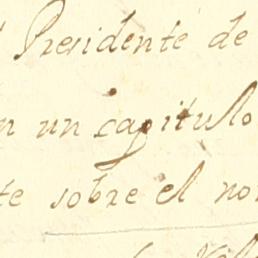 Presidente de
n un capitulo
te sobre el no